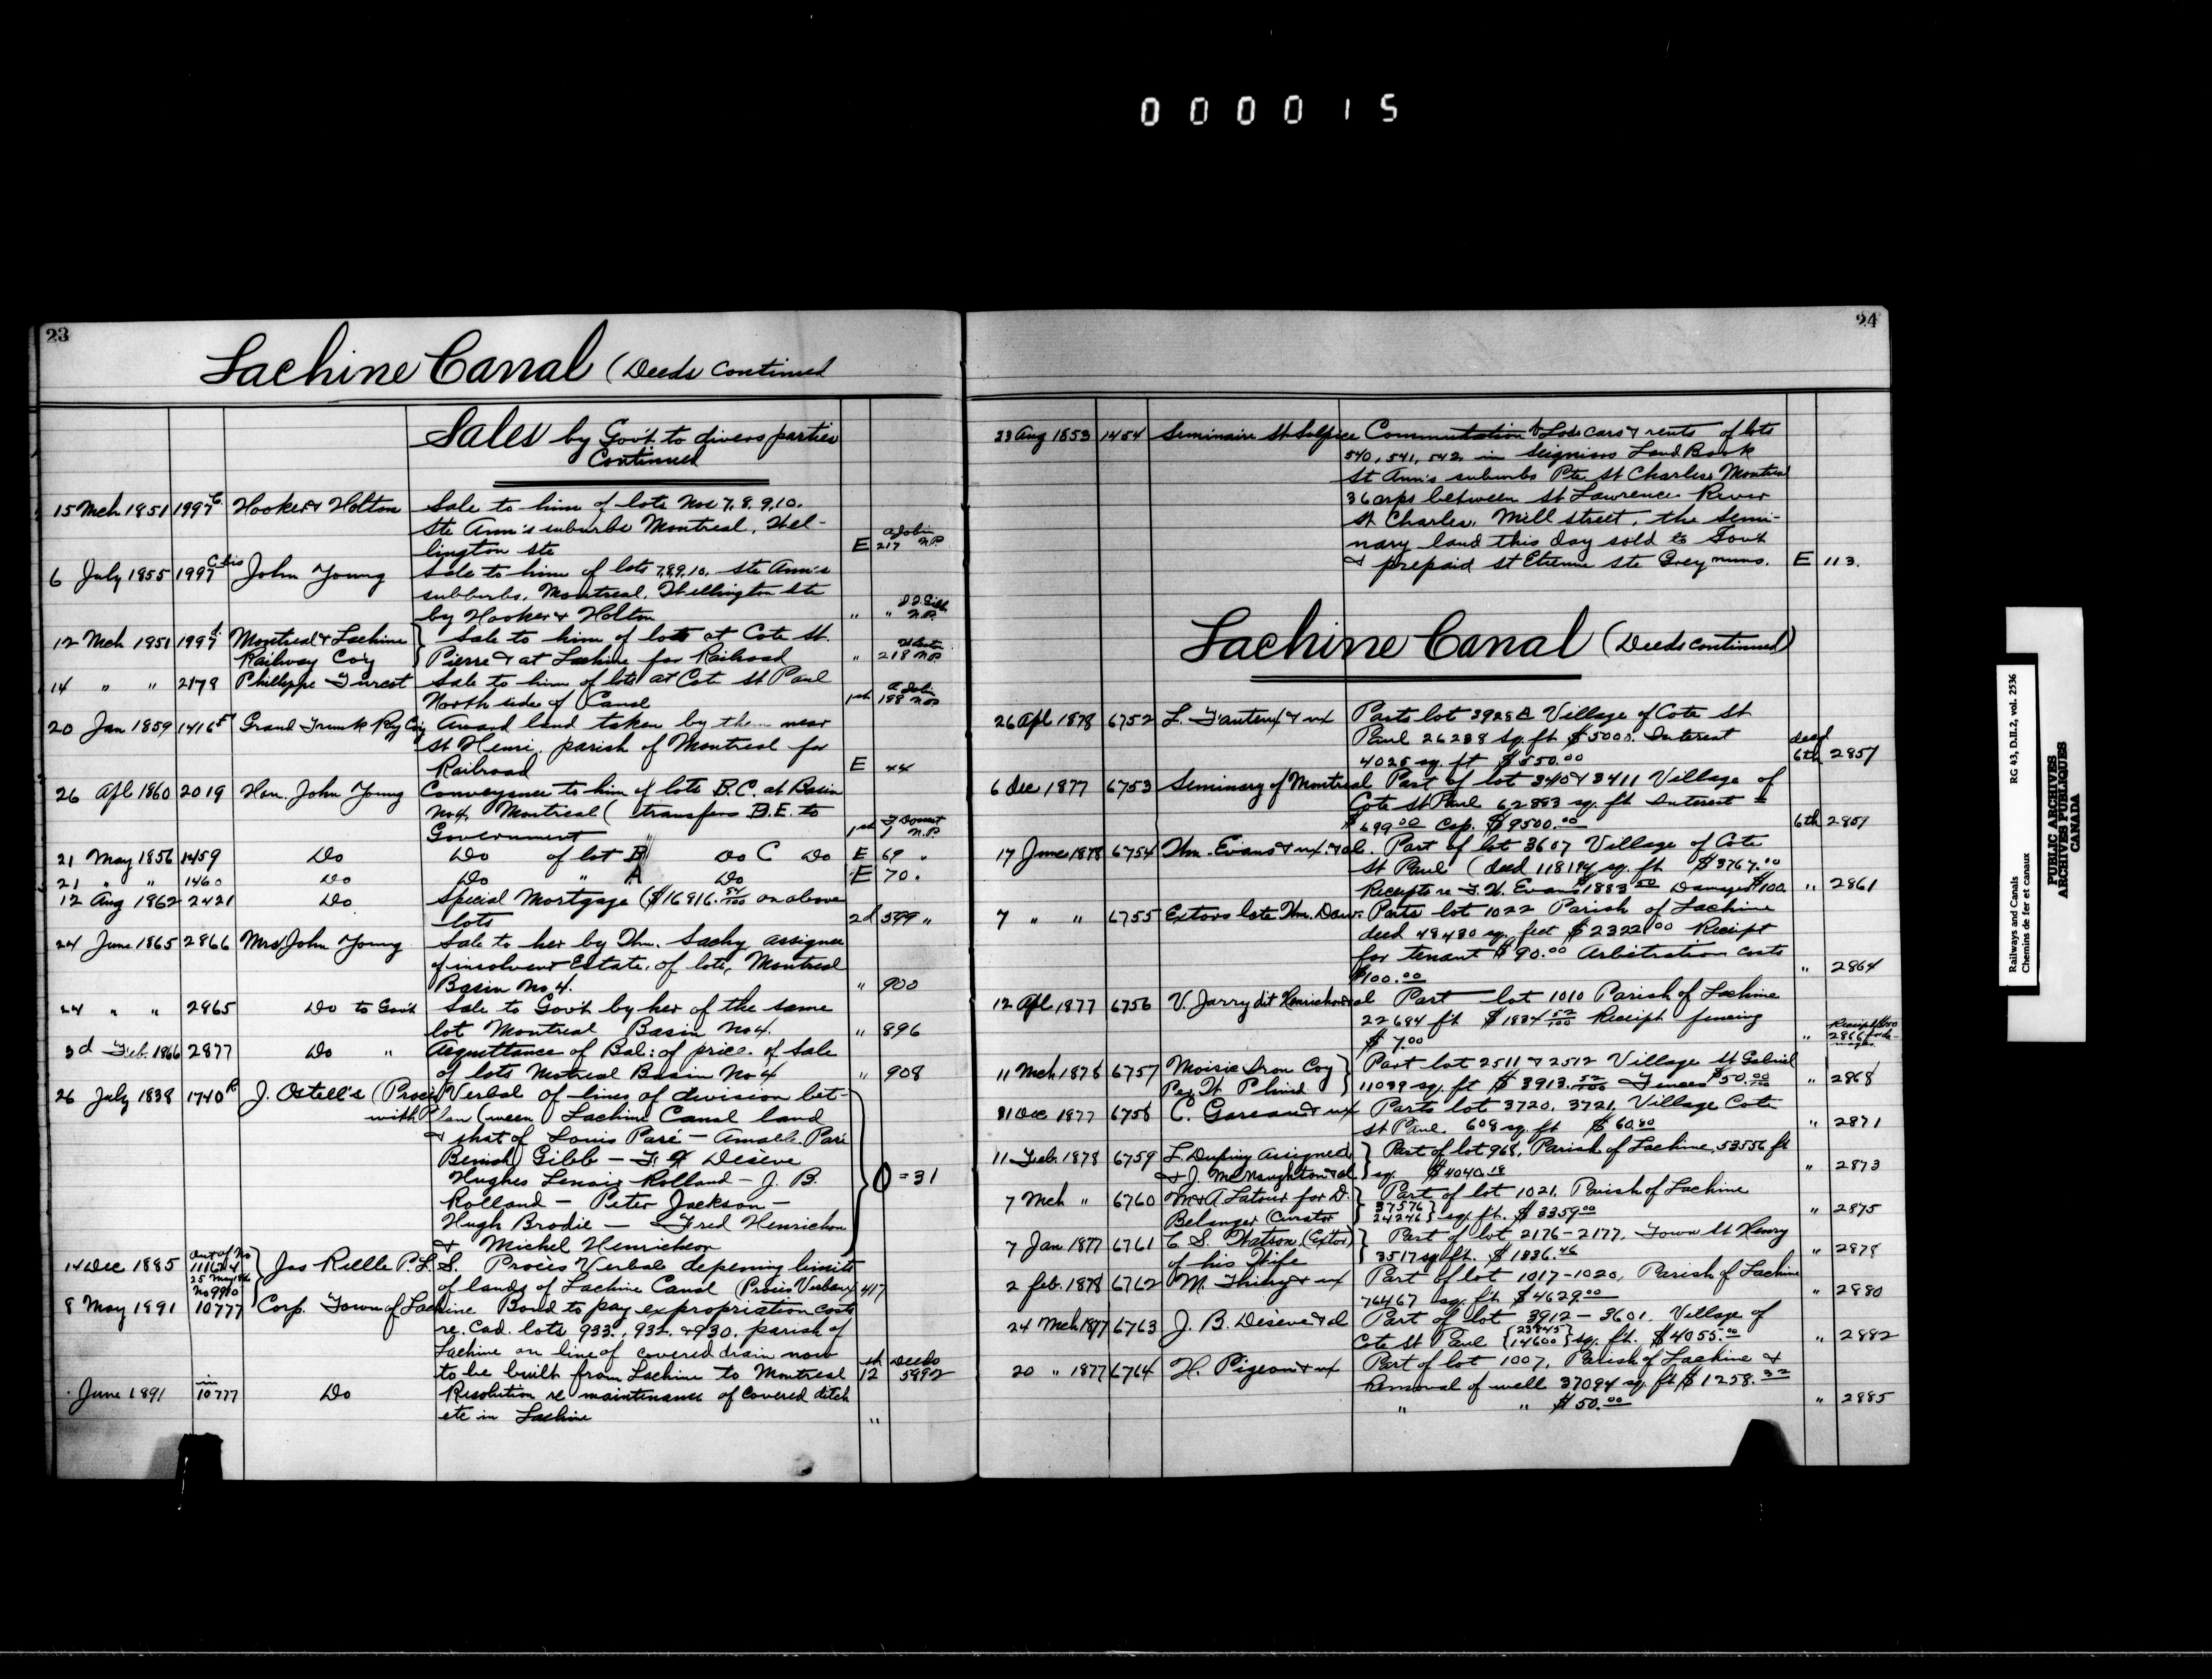 000015
23
Lachine Canal (Deeds continued
Sales by Gov't to divers parties
Continued
15 Mch 1851 1997 C Hooker & Holton Sale to him of lots Nos 7, 8, 9, 10.
Ste Ann's suburbs Montreal, Wel-
lington Ste E 217 A Jobin N.P.
6 July 1855 1997 C bis John Young Sale to him of lots 7,8,9,10, Ste Ann's
subburbs, Montreal, Wellington Ste
by Hooker & Holton " " N.P.
12 Mch 1851 1997 Montreal & Lachine } Sale to him of lots at Cote St.
Railway Co'y } Pierre & at Lachine for Railroad " 218 N.P.
14 " " 2178 Phillippe Turcot Sale to him of lots at Cot St Paul
North side of Canal 1st 188 A Jobin N.P.
20 Jan 1859 1416 Grand Trunk Ry Coy Award land taken by them near
St Henri, parish of Montreal for
Railroad E 44
26 Apl 1860 2019 Hon. John Young Conveyance to him of lots B.C. at Basin
No 4, Montreal ( transfers B.E. to
Government 1st 1 N.P.
21 May 1856 1459 Do Do of lot B Do C Do E 69 "
21 " " 1460 Do Do " A Do E 70 "
12 Aug 1862 2421 Do Special Mortgage ($16916.54/100 on above
lots 2d 599 "
24 June 1865 2866 Mrs John Young Sale to her by Wm. Sachy assignee
of insolvent Estate, of lots, Montreal
Basin No 4. " 900
24 " " 2865 Do to Gov't Sale to Gov't by her of the same
lot Montreal Basin No 4. " 896
3d Feb. 1866 2877 Do " Acquittance of Bal: of price of Sale
of lots Montreal Basin No 4 " 908
26 July 1838 1740 R J. Ostell's (Procès Verbal of lines of division bet-
with Plan (ween Lachine Canal land
& that of Louis Paré — Amable Paré
Beniah Gibb — F. X Déséve
Hughes Lenoir Rolland — J. B.
Rolland — Peter Jackson —
Hugh Brodie — Fred Henrichon
& Michel Henrichon } O = 31
14 Dec 1885 out of No 111674 25 May 1886 No 9910 } Jas Rielle P.L.S. Procès Verbal depening limits
of lands of Lachine Canal (Procès Verbaux 417
8 May 1891 10777 Corp. Town of Lachine Bond to pay expropriation costs
re. Cad. lots 933, 932, & 930, parish of
Lachine on line of covered drain now
to be built from Lachine to Montreal 12 Deeds 5992
June 1891 in 10777 Do Resolution re maintenance of covered ditch
etc in Lachine "
24
23 Aug 1853 1454 Seminaire St Sulpice Commutation of Lods cars & rents of lots
540, 541, 542, in Seigniors Land Book
St Ann's suburbs Pte St Charles, Montreal
36 arps between St Lawrence River
St Charles, Mill street, the Semi-
nary land this day sold to Gov't
& prepaid St Etienne Ste Grey nuns. E 113.
Lachine Canal (Deeds continued)
26 Apl 1878 6752 L. Fauteux & ux Parts lot 3928 A Village of Cote St
Paul 26288 sq. ft $5000. Interest
4025 sq. ft $550.00 deed 6th 2857
6 Dec 1877 6753 Seminary of Montreal Part of lot 340 & 3411 Village of
Cote St Paul 62883 sq. ft Interest =
$699.00 Cap. $9500.00 6th 2859
17 June 1878 6754 Wm. Evans & ux. & al. Part of lot 3607 Village of Cote
St Paul (deed 118194 sq. ft $3767.00
Receipts re F. W. Evans $1883.50 Damages $100. " 2861
7 " " 6755 Extors late Wm. Daw: Parts lot 1022 Parish of Lachine
deed 48480 sq. feet $2322.00 Receipt
for tenant $90.00 Arbitration costs
$100.00 " 2864
12 Apl 1877 6756 V. Jarry dit Henrichon & al Part lot 1010 Parish of Lachine
22684 ft $1834 52/100 Receipt fencing
$7.00 " 2866
11 Mch 1878 6757 Moisie Iron Coy } Part lot 2511 & 2512 Village St Gabriel
Per W } 11039 sq. ft $3913.52/100 Fences $50.00 " 2868
31 Dec 1877 6758 C. Gareau & ux Parts lot 3720, 3721, Village Cote
St Paul 608 sq. ft $60.80 " 2871
11 Feb. 1878 6759 L. Dupuy Assignee } Part of lot 968, Parish of Lachine, 53556 ft
& J. McNaughton & al } sq. $4040.18 " 2873
7 Mch " 6760 M & A. Latour for D. } Part of lot 1021, Parish of Lachine
Belanger Curator } 37576 24246 } sq. ft. $3359.00 " 2875
7 Jan 1877 6761 C. S. Watson (Extor) } Part of lot 2176-2177, Town St Henry
of his Wife } 3517 sq. ft. $1836.46 " 2878
2 feb. 1878 6762 M. Thiery & ux Part of lot 1017-1020, Parish of Lachine
76467 sq. ft $4629.00 " 2880
24 Mch 1877 6763 J. B. Déséve & al Part of lot 3912 - 3601 Village of
Cote St Paul { 23845 14600 } sq. ft. $4055.00 " 2882
20 " 1877 6764 H. Pigeon & ux Part of lot 1007, Parish of Lachine &
Removal of well 37094 sq. ft $1258.32
" " $50.00 " 2885
Railways and Canals RG 43, D.II.2, vol. 2536
Chemins de fer et canaux
PUBLIC ARCHIVES
ARCHIVES PUBLIQUES
CANADA